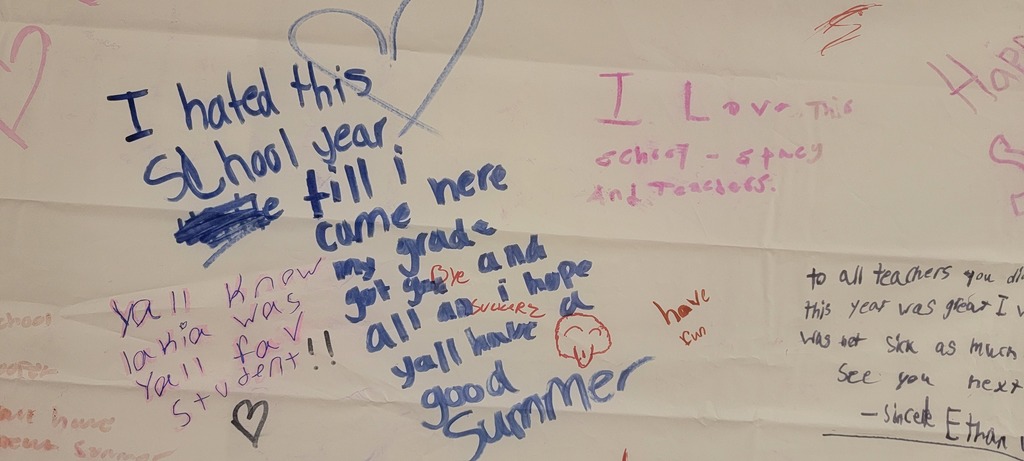 I hated this
School year
till i
came here
my grade
got and
all an i hope
yall have a
good
Summer
Yall know
lakia was
Yall fav
Student!!
I Love This
school - stacy
And Teachers.
have
fun
Happ
to all teachers you di
this year was great I w
was not sick as much
See you next
- sincere Ethan
school
have
summer